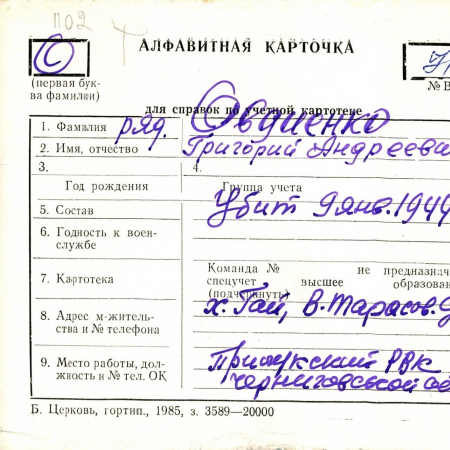 1102
О
АЛФАВИТНАЯ КАРТОЧКА
(первая бук-
ва фамилии)
№ В
для справок по учетной картотеке
1. Фамилия ряд. Овдиенко
2. Имя, отчество Григорий Андрееви
3.
4.
Год рождения
Группа учета
5. Состав
Убит 9 янв. 1944
6. Годность к воен-
службе
Команда № не предназнач
7. Картотека
спецучет высшее образован
(подчеркнуть)
8. Адрес м-житель-
ства и № телефона
х. Гай, В. Тарасов.
9. Место работы, дол-
жность и № тел. ОК
Прилукский РВК
Черниговской об
Б. Церковь, гортип., 1985, з. 3589—20000